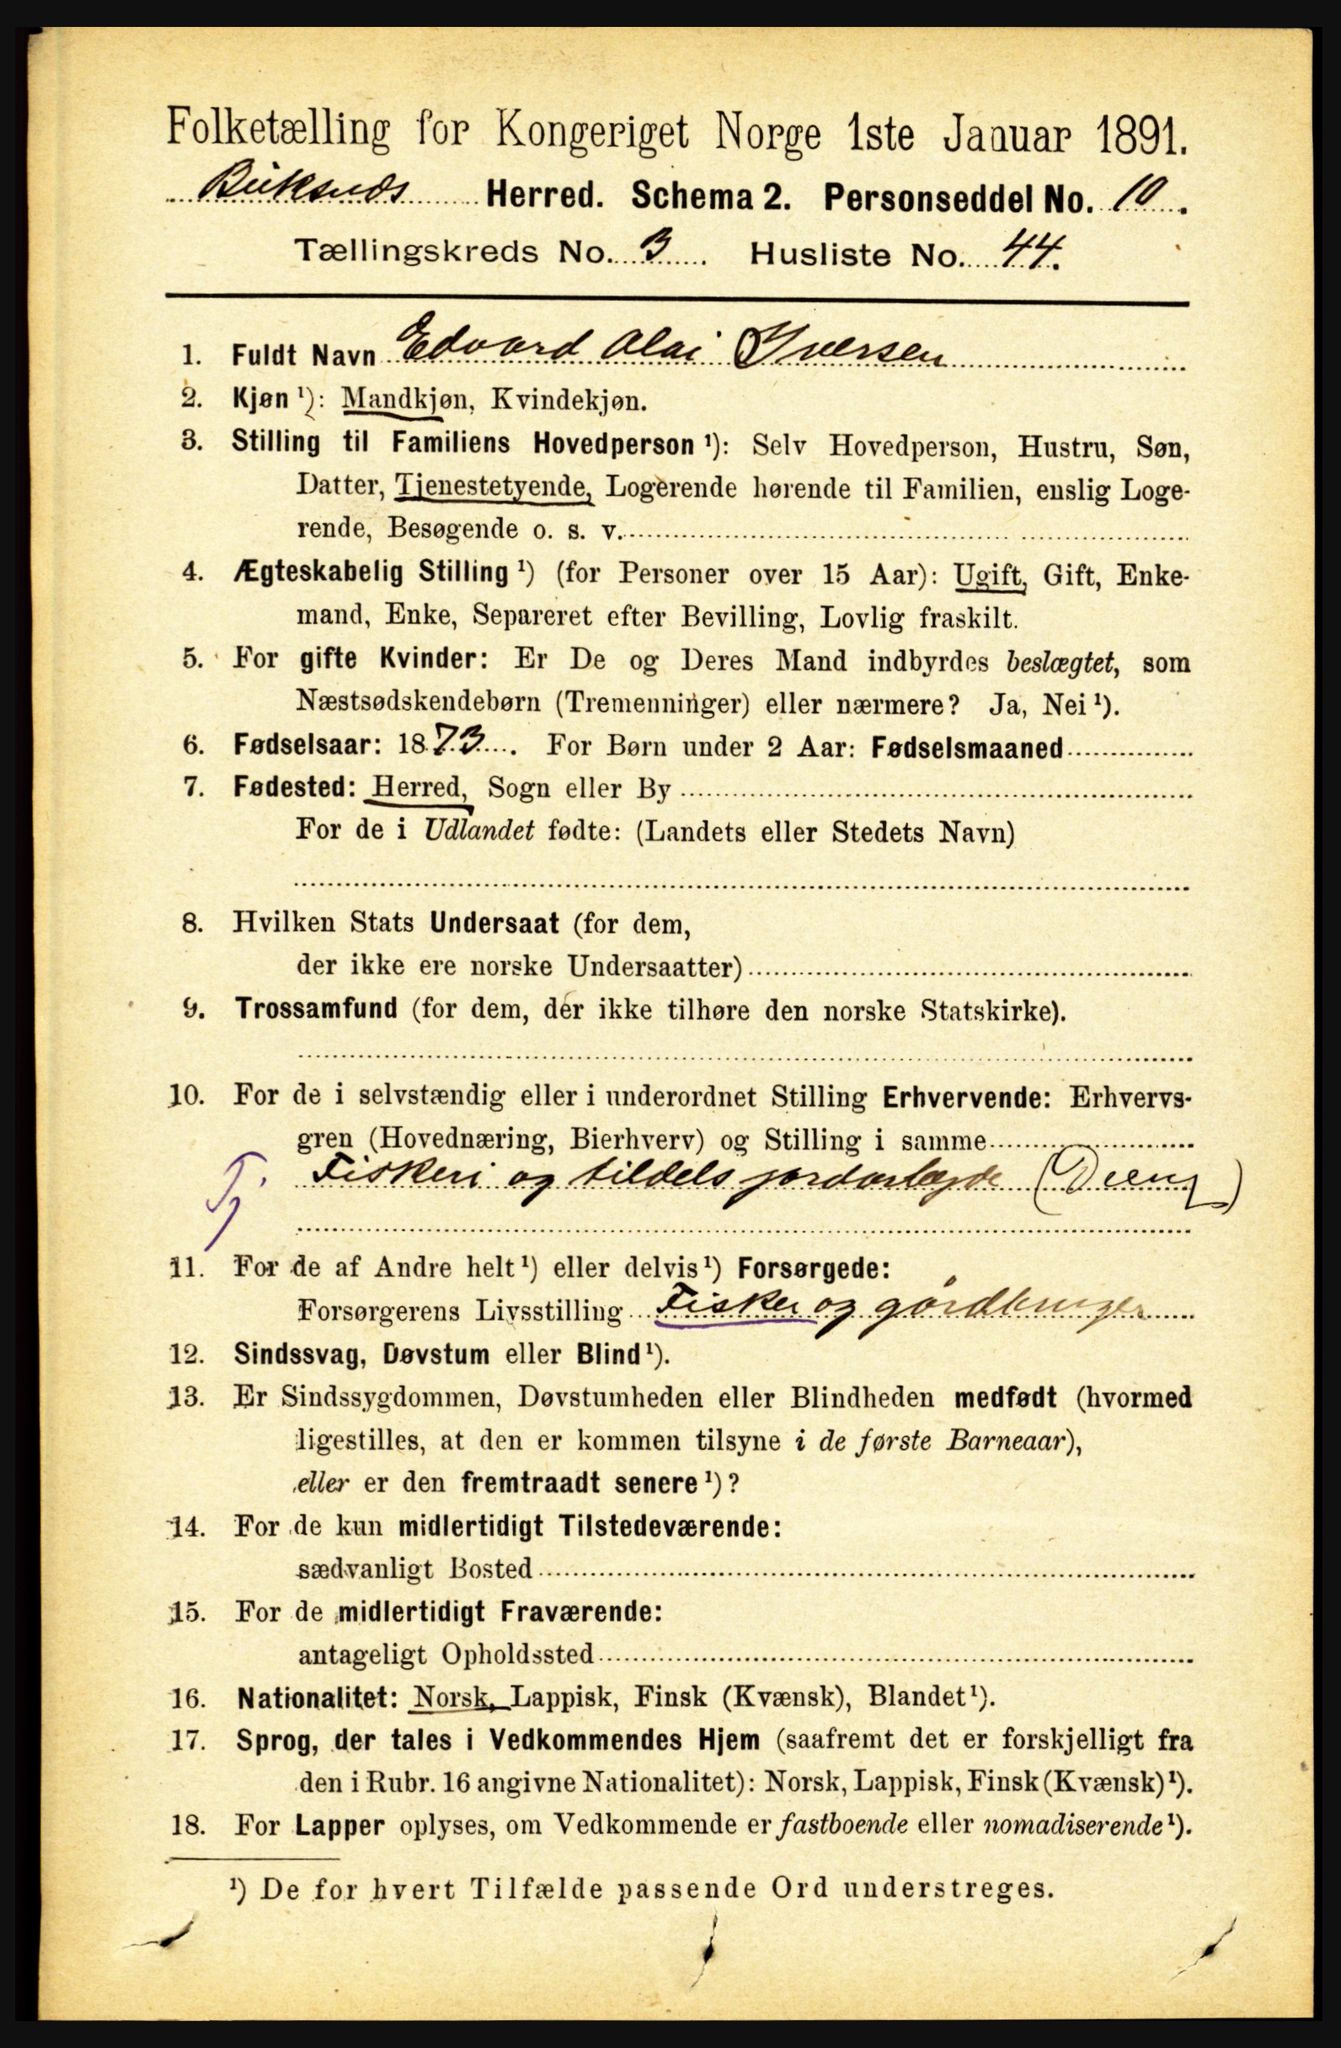 Folketælling for Kongeriget Norge 1ste Januar 1891.
Buksnæs Herred. Schema 2. Personseddel No. 10.
Tællingskreds No. 3. Husliste No. 44.
1. Fuldt Navn Edvard Olai Iversen
2. Kjøn ¹): Mandkjøn, Kvindekjøn.
3. Stilling til Familiens Hovedperson ¹): Selv Hovedperson, Hustru, Søn,
Datter, Tjenestetyende, Logerende hørende til Familien, enslig Loge-
rende, Besøgende o. s. v.
4. Ægteskabelig Stilling ¹) (for Personer over 15 Aar): Ugift, Gift, Enke-
mand, Enke, Separeret efter Bevilling, Lovlig fraskilt.
5. For gifte Kvinder: Er De og Deres Mand indbyrdes beslægtet, som
Næstsødskendebørn (Tremenninger) eller nærmere? Ja, Nei ¹).
6. Fødselsaar: 1873. For Børn under 2 Aar: Fødselsmaaned
7. Fødested: Herred, Sogn eller By
For de i Udlandet fødte: (Landets eller Stedets Navn)
8. Hvilken Stats Undersaat (for dem,
der ikke ere norske Undersaatter)
9. Trossamfund (for dem, der ikke tilhøre den norske Statskirke).
10. For de i selvstændig eller i underordnet Stilling Erhvervende: Erhvervs-
gren (Hovednæring, Bierhverv) og Stilling i samme
Tj. Fiskeri og tildels jordarbejde (Dreng)
11. For de af Andre helt ¹) eller delvis ¹) Forsørgede:
Forsørgerens Livsstilling Fisker og gårdbruger
12. Sindssvag, Døvstum eller Blind ¹).
13. Er Sindssygdommen, Døvstumheden eller Blindheden medfødt (hvormed
ligestilles, at den er kommen tilsyne i de første Barneaar),
eller er den fremtraadt senere ¹)?
14. For de kun midlertidigt Tilstedeværende:
sædvanligt Bosted
15. For de midlertidigt Fraværende:
antageligt Opholdssted
16. Nationalitet: Norsk, Lappisk, Finsk (Kvænsk), Blandet ¹).
17. Sprog, der tales i Vedkommendes Hjem (saafremt det er forskjelligt fra
den i Rubr. 16 angivne Nationalitet): Norsk, Lappisk, Finsk (Kvænsk) ¹).
18. For Lapper oplyses, om Vedkommende er fastboende eller nomadiserende ¹).
¹) De for hvert Tilfælde passende Ord understreges.